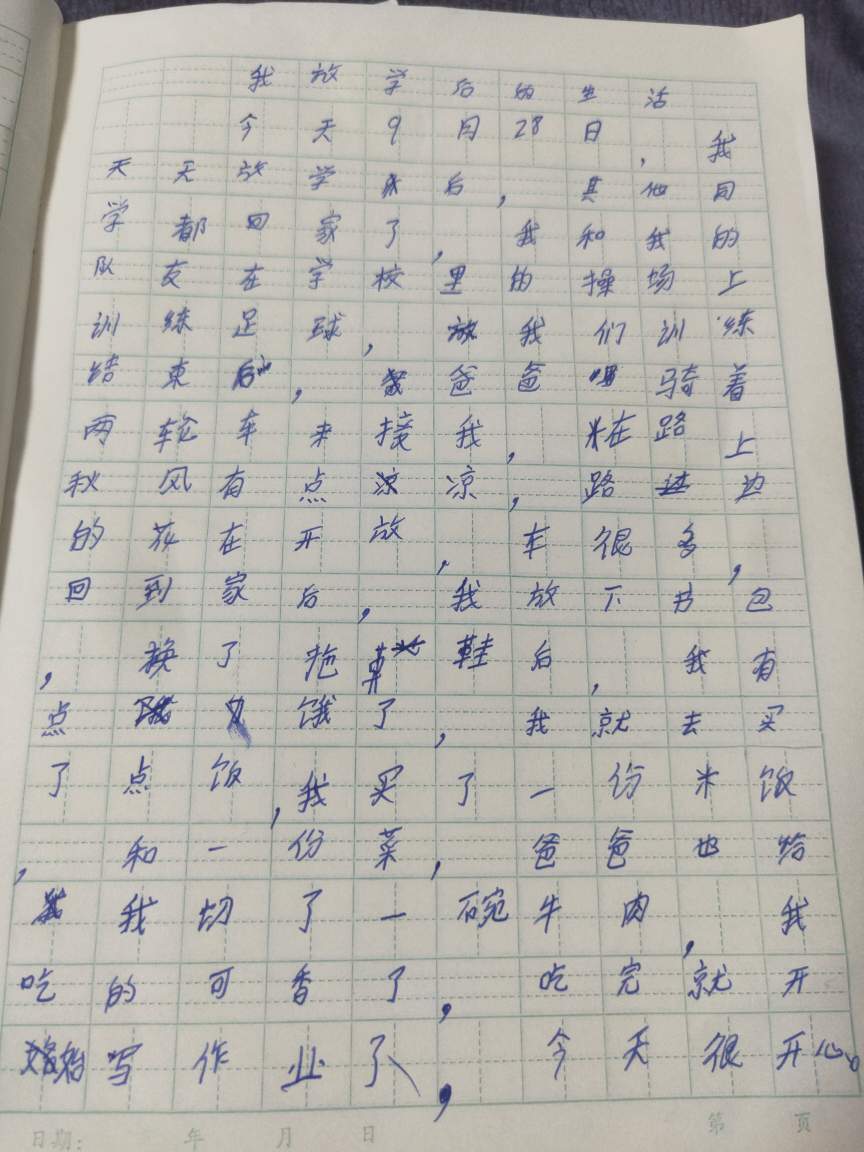 我放学后的生活
今天9月28日,我
天天放学后,其他同
学都回家了,我和我的
队友在学校里的操场上
训练足球,我们训练
结束后,爸爸骑着
两轮车来接我,在路上
秋风有点凉,路边
的花在开放,车很多,
回到家后,我放下书包
,换了拖鞋后,我有
点饿了,我就去买
了点饭,我买了一份米饭
,和一份菜,爸爸也给
我切了一碗牛肉,我
吃的可香了,吃完就开
始写作业了,今天很开心。
日期: 年 月 日 第 页